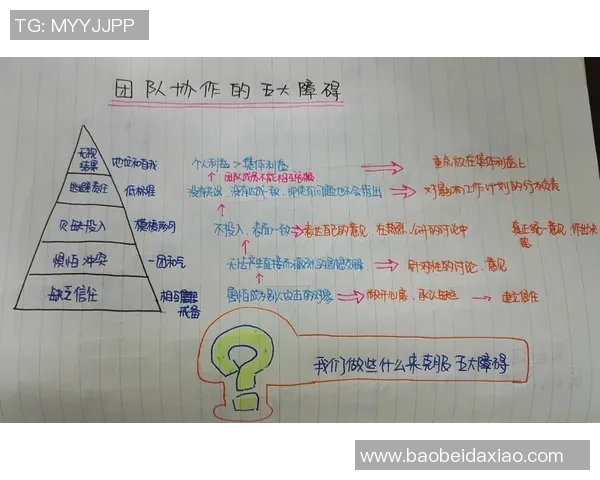 TG: MYYJJPP
团队协作的五大障碍
无视结果 地位和自我 个人利益 > 集体利益 重点放在集体利益上
团队成员不能相互
逃避责任 低标准 没有共识,没有达成一致,即使有问题也不会指出 对影响工作计划的行为负责
欠缺投入 模棱两可 不投入,表面一致 表达自己的意见,在激烈、公开的讨论中 真正统一意见,作出决策
惧怕冲突 一团和气 无法产生直接而激烈的思想交锋 针对性的讨论、意见
缺乏信任 相互戒备 害怕成为别人攻击的对象 敞开心扉,承认 建立信任
我们做些什么来克服五大障碍
www.baobeidaxiao.com